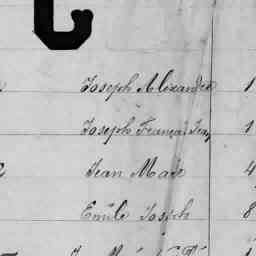 C
Joseph Alexandre 1
Joseph Françai Jean 1
2 Jean Made 4
Emile Joseph 8